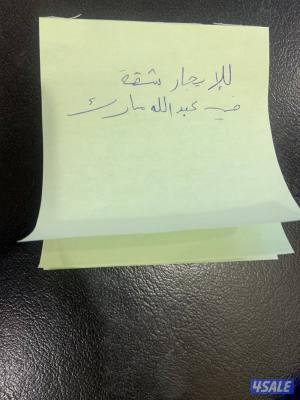 للإيجار شقة
في عبدالله مبارك
4SALE